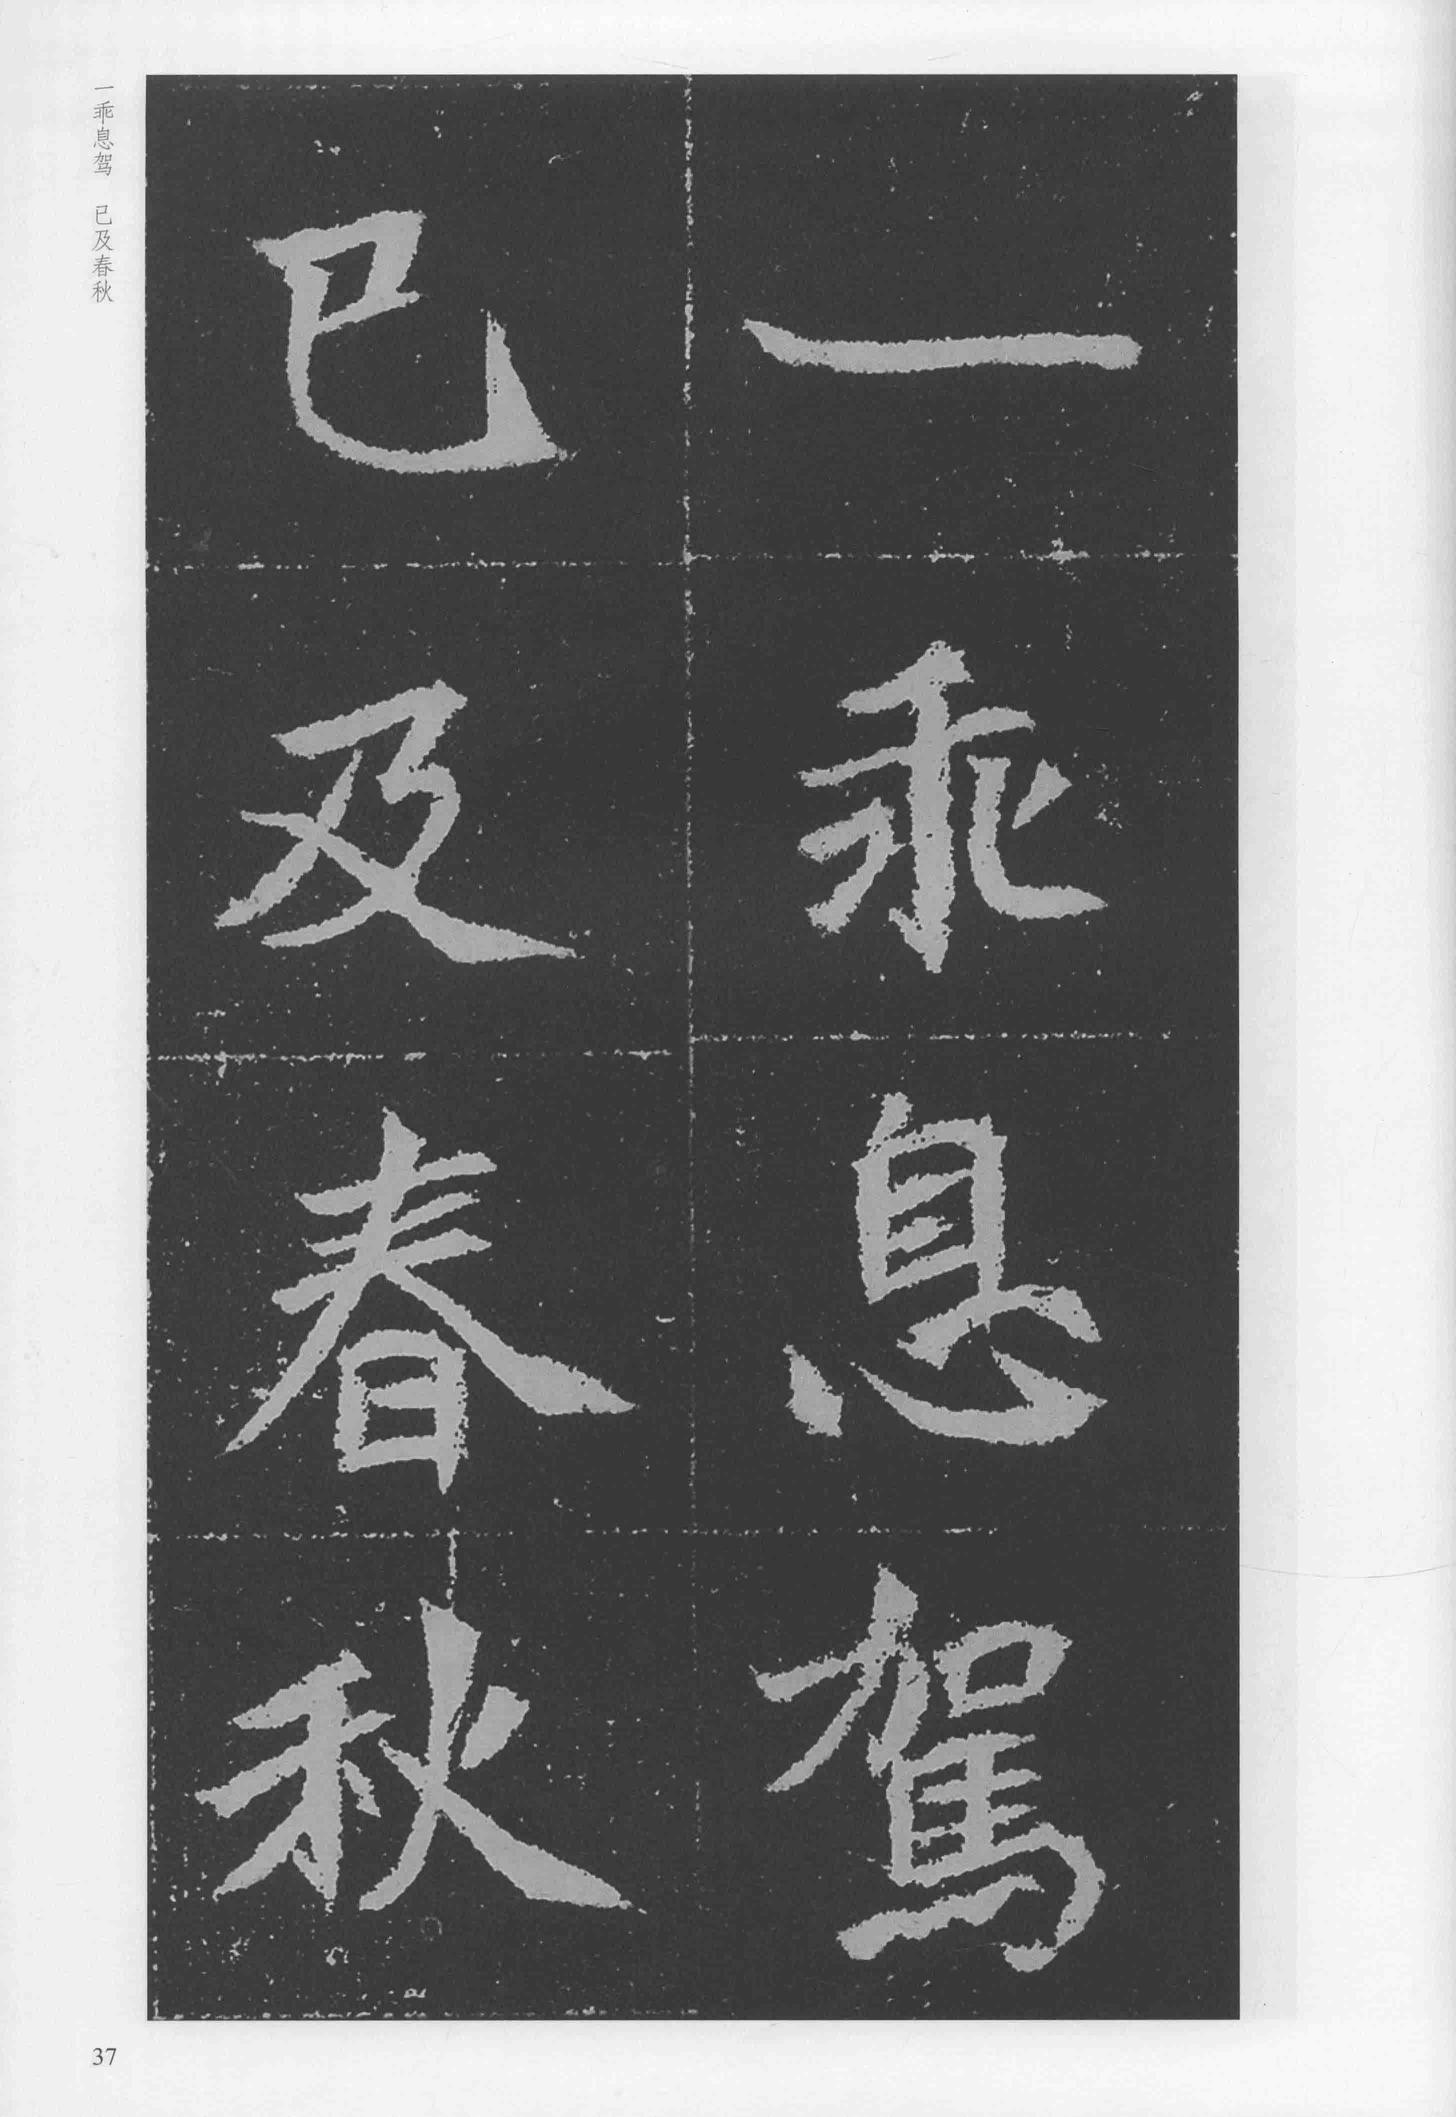 一乖息駕
已及春秋
一乖息驾 已及春秋
37